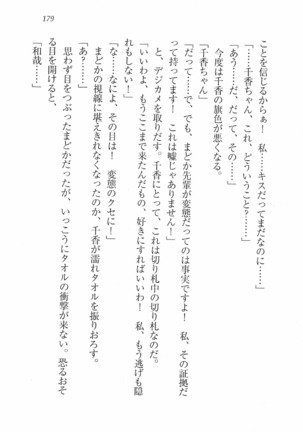 179
ことを信じるからぁ！　私……キスだってまだなのに……」
「……千香ちゃん、これ、どういうこと？……」
「あう……だ、だって、その……」
今度は千香の旗色が悪くなる。
「千香ちゃん」
「だって……で、でも、まどか先輩が変態だってのは事実ですよ！　私、その証拠だ
って持ってます！　これは嘘じゃありません！」
と、デジカメを取りだす。千香にとって、これは切り札中の切り札なのだ。
「いいわよ、もうここまで来たんだもの、好きにすればいいわ！　私、もう逃げも隠
れもしない！」
「な……なによ、その目は！　変態のクセに！」
まどかの視線に堪えきれなくなったのか、千香が濡れタオルを振りおろす。
「あ？……」
思わず目をつぶったまどかだったが、いっこうにタオルの衝撃が来ない。恐るおそ
る目を開けると、
「和哉……」